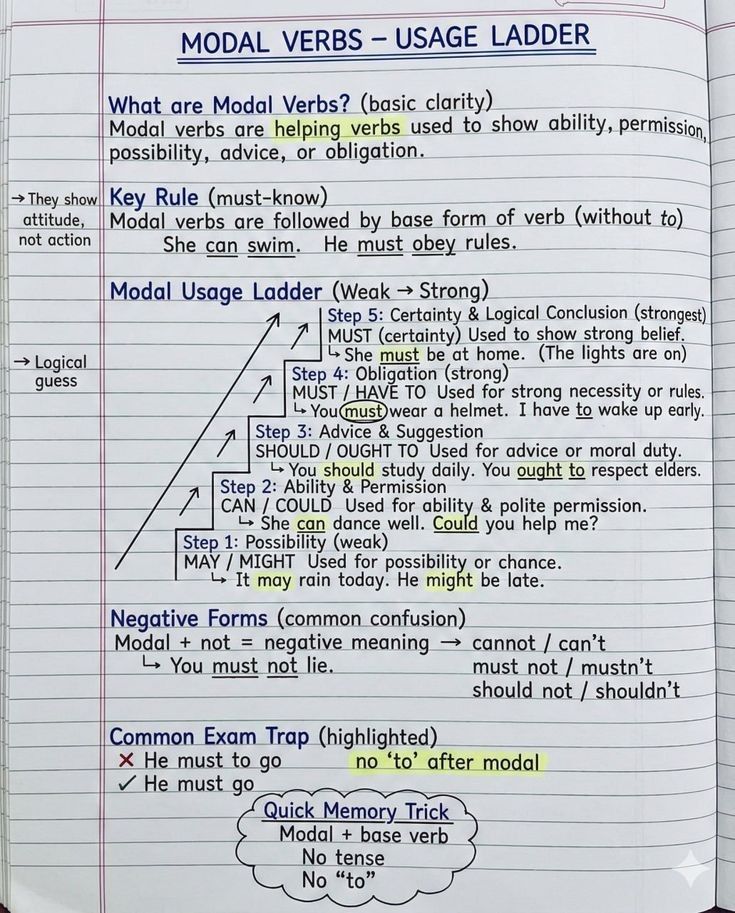 MODAL VERBS – USAGE LADDER
What are Modal Verbs? (basic clarity)
Modal verbs are helping verbs used to show ability, permission,
possibility, advice, or obligation.
→ They show
attitude,
not action
Key Rule (must-know)
Modal verbs are followed by base form of verb (without to)
She can swim. He must obey rules.
Modal Usage Ladder (Weak → Strong)
→ Logical
guess
Step 5: Certainty & Logical Conclusion (strongest)
MUST (certainty) Used to show strong belief.
↳ She must be at home. (The lights are on)
Step 4: Obligation (strong)
MUST / HAVE TO Used for strong necessity or rules.
↳ You must wear a helmet. I have to wake up early.
Step 3: Advice & Suggestion
SHOULD / OUGHT TO Used for advice or moral duty.
↳ You should study daily. You ought to respect elders.
Step 2: Ability & Permission
CAN / COULD Used for ability & polite permission.
↳ She can dance well. Could you help me?
Step 1: Possibility (weak)
MAY / MIGHT Used for possibility or chance.
↳ It may rain today. He might be late.
Negative Forms (common confusion)
Modal + not = negative meaning → cannot / can't
↳ You must not lie. must not / mustn't
should not / shouldn't
Common Exam Trap (highlighted)
✗ He must to go no 'to' after modal
✓ He must go
Quick Memory Trick
Modal + base verb
No tense
No "to"